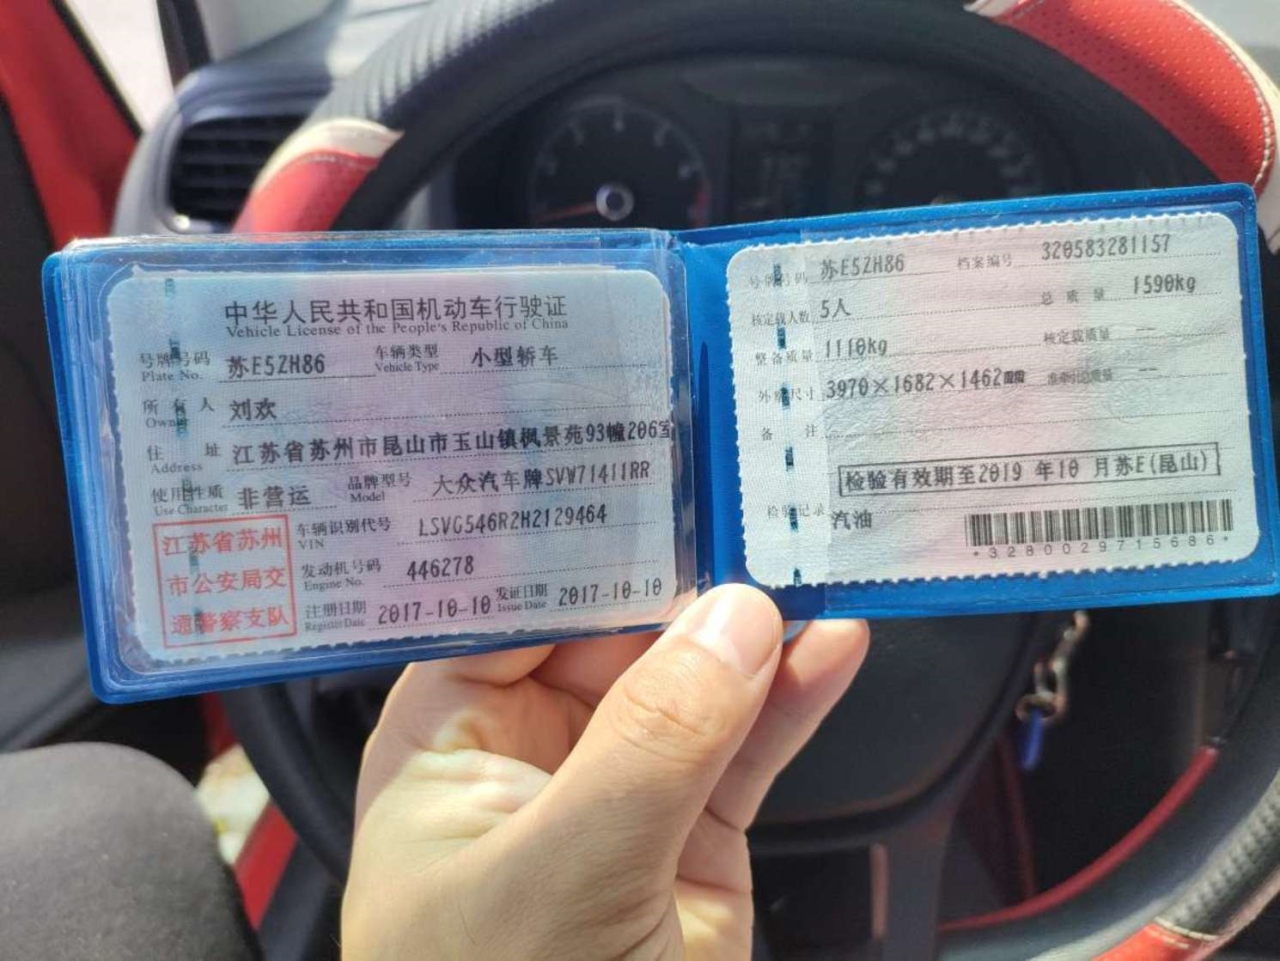 中华人民共和国机动车行驶证
Vehicle License of the People's Republic of China
号牌号码 苏E5ZH86 车辆类型 小型轿车
Plate No. Vehicle Type
所有人 刘欢
Owner
住址 江苏省苏州市昆山市玉山镇枫景苑93幢206室
Address
使用性质 非营运 品牌型号 大众汽车牌SVW71411RR
Use Character Model
江苏省苏州
市公安局交
通警察支队
车辆识别代号 LSVG546R2H2129464
VIN
发动机号码 446278
Engine No.
注册日期 2017-10-10 发证日期 2017-10-10
Register Date Issue Date
号牌号码 苏E5ZH86 档案编号 320583281157
核定载人数 5人 总质量 1590kg
整备质量 1110kg 核定载质量 --
外廓尺寸 3970×1682×1462mm 准牵引总质量 --
备注
检验有效期至2019 年10 月苏E(昆山)
检验记录 汽油
*3280029715686*